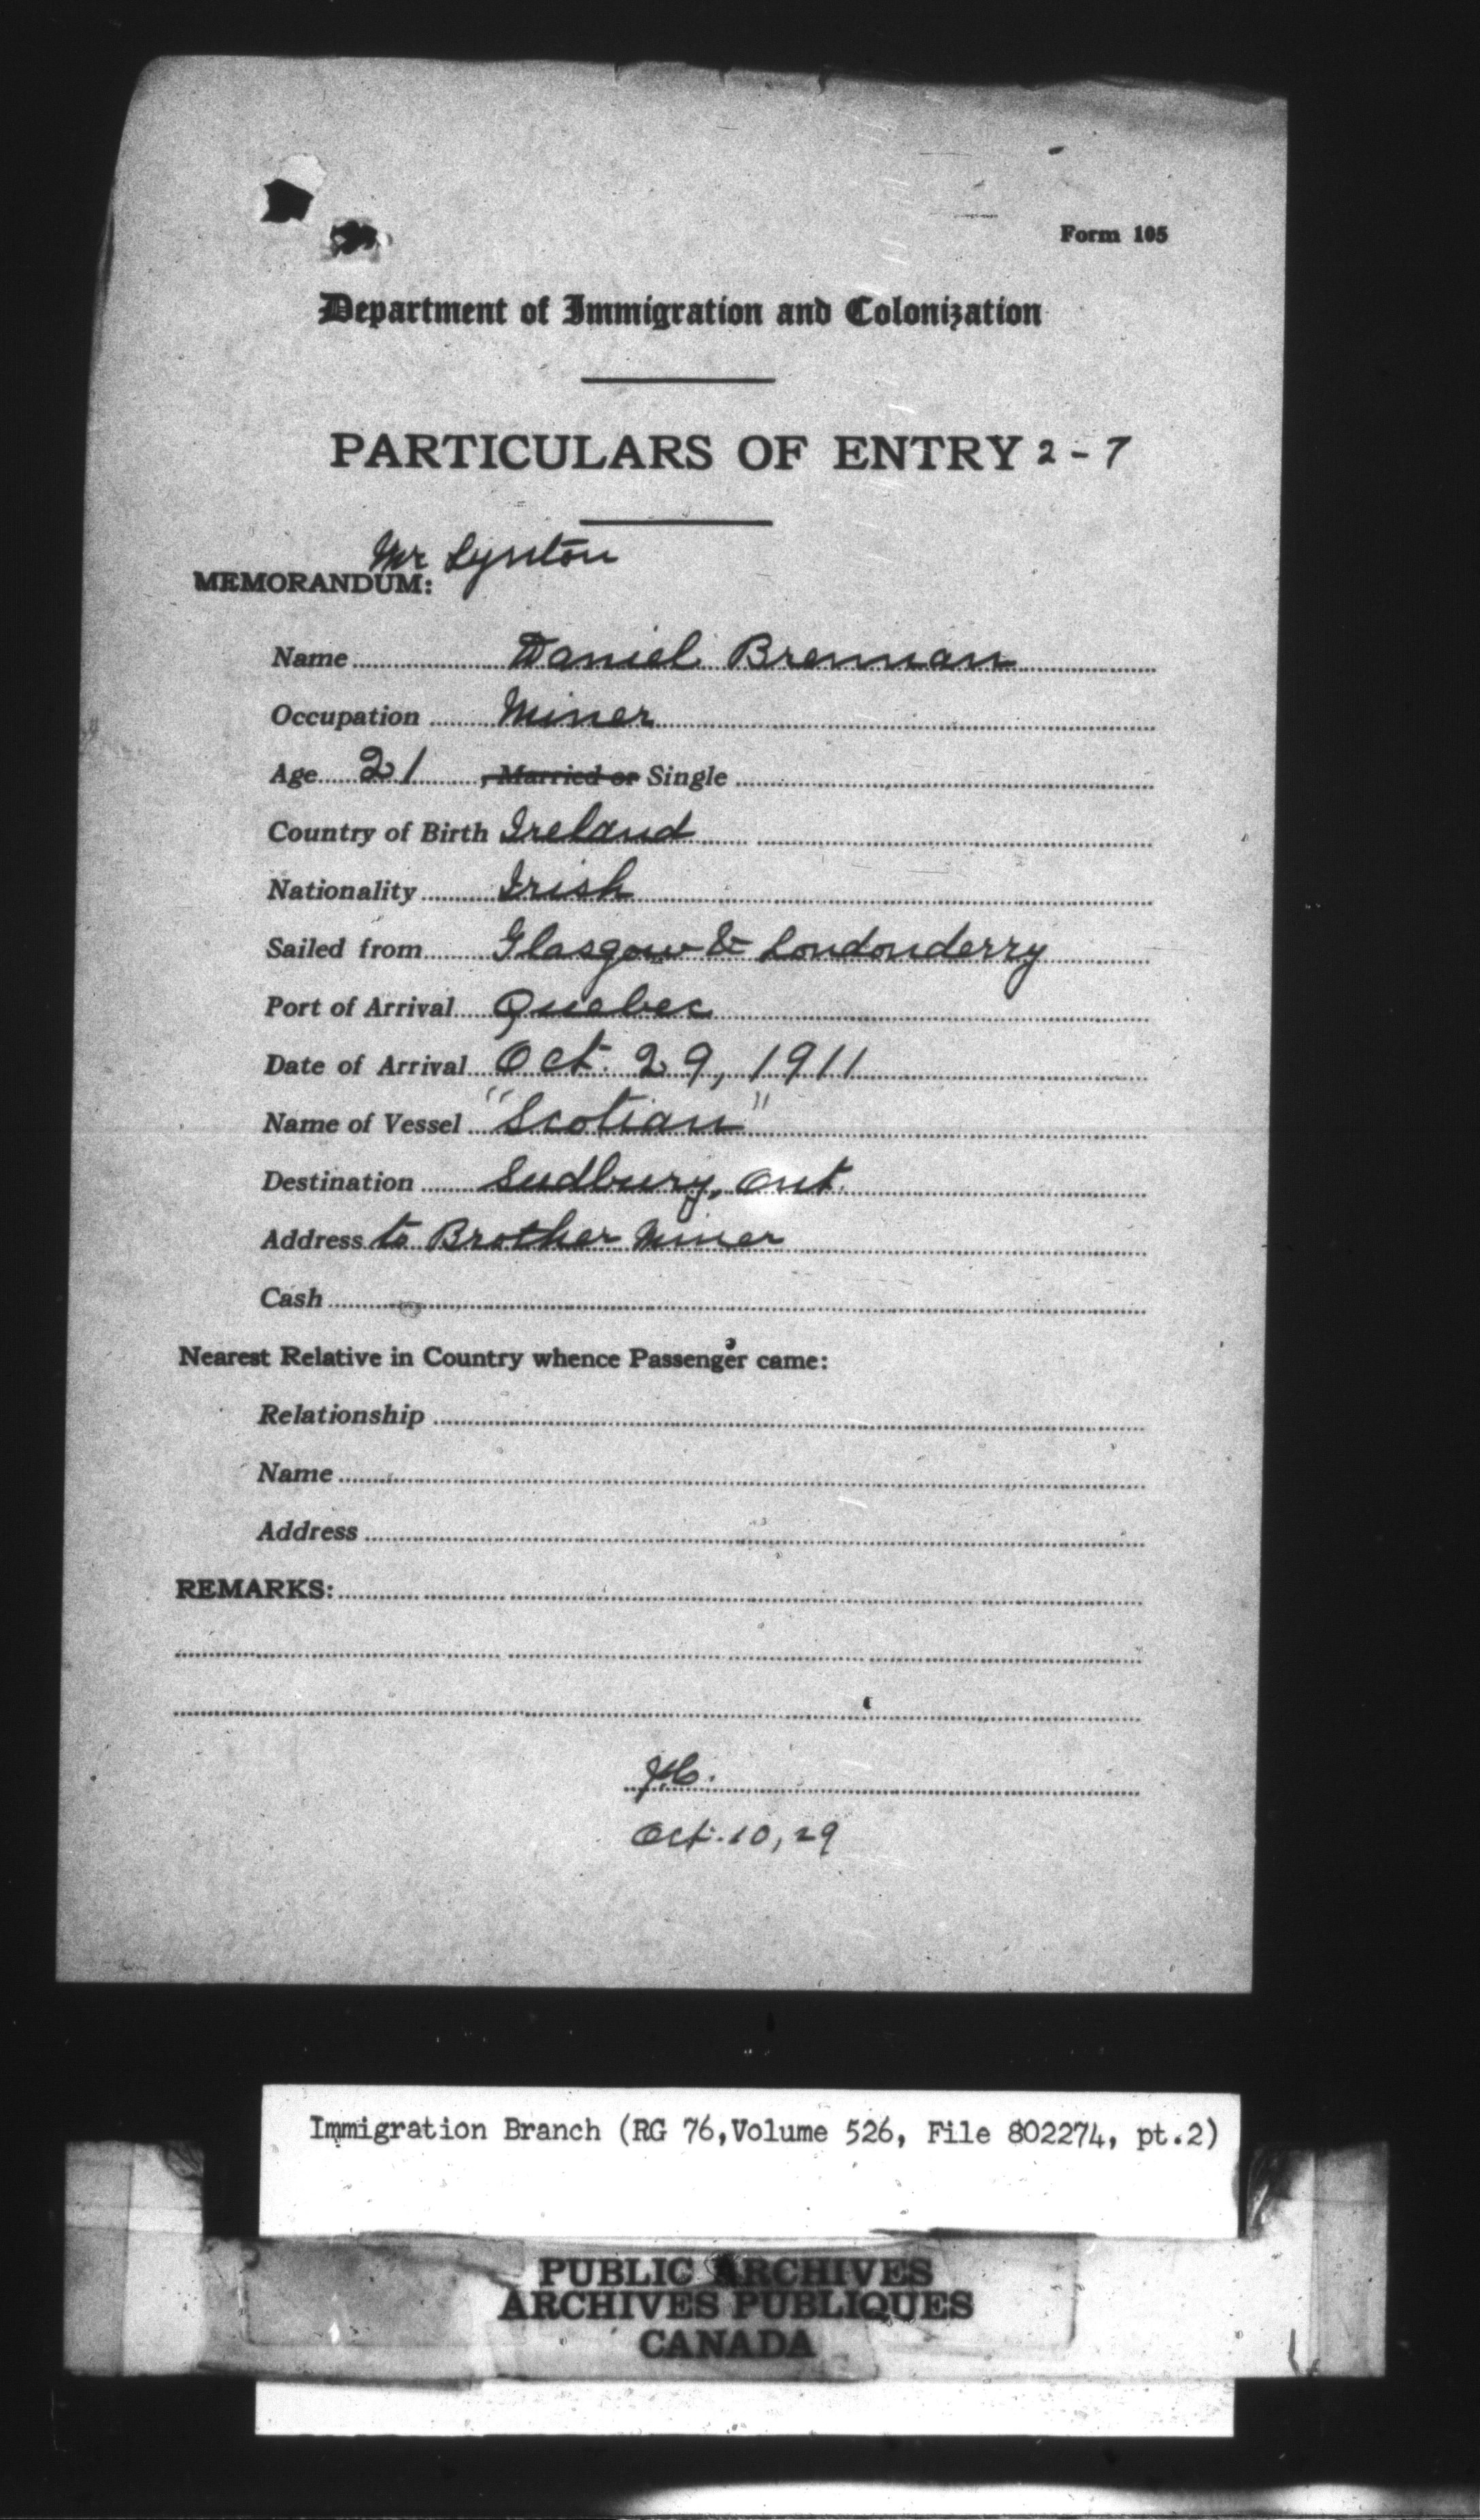 Form 105
Department of Immigration and Colonization
PARTICULARS OF ENTRY 2-7
Mr
MEMORANDUM:
Name Daniel Brennan
Occupation Miner
Age 21 , Married or Single
Country of Birth Ireland
Nationality Irish
Sailed from Glasgow & Londonderry
Port of Arrival Quebec
Date of Arrival Oct. 29, 1911
Name of Vessel "Scotian"
Destination Sudbury, Ont.
Address to Brother Miner
Cash
Nearest Relative in Country whence Passenger came:
Relationship
Name
Address
REMARKS:
Oct. 10, 29
Immigration Branch (RG 76, Volume 526, File 802274, pt.2)
PUBLIC ARCHIVES
ARCHIVES PUBLIQUES
CANADA